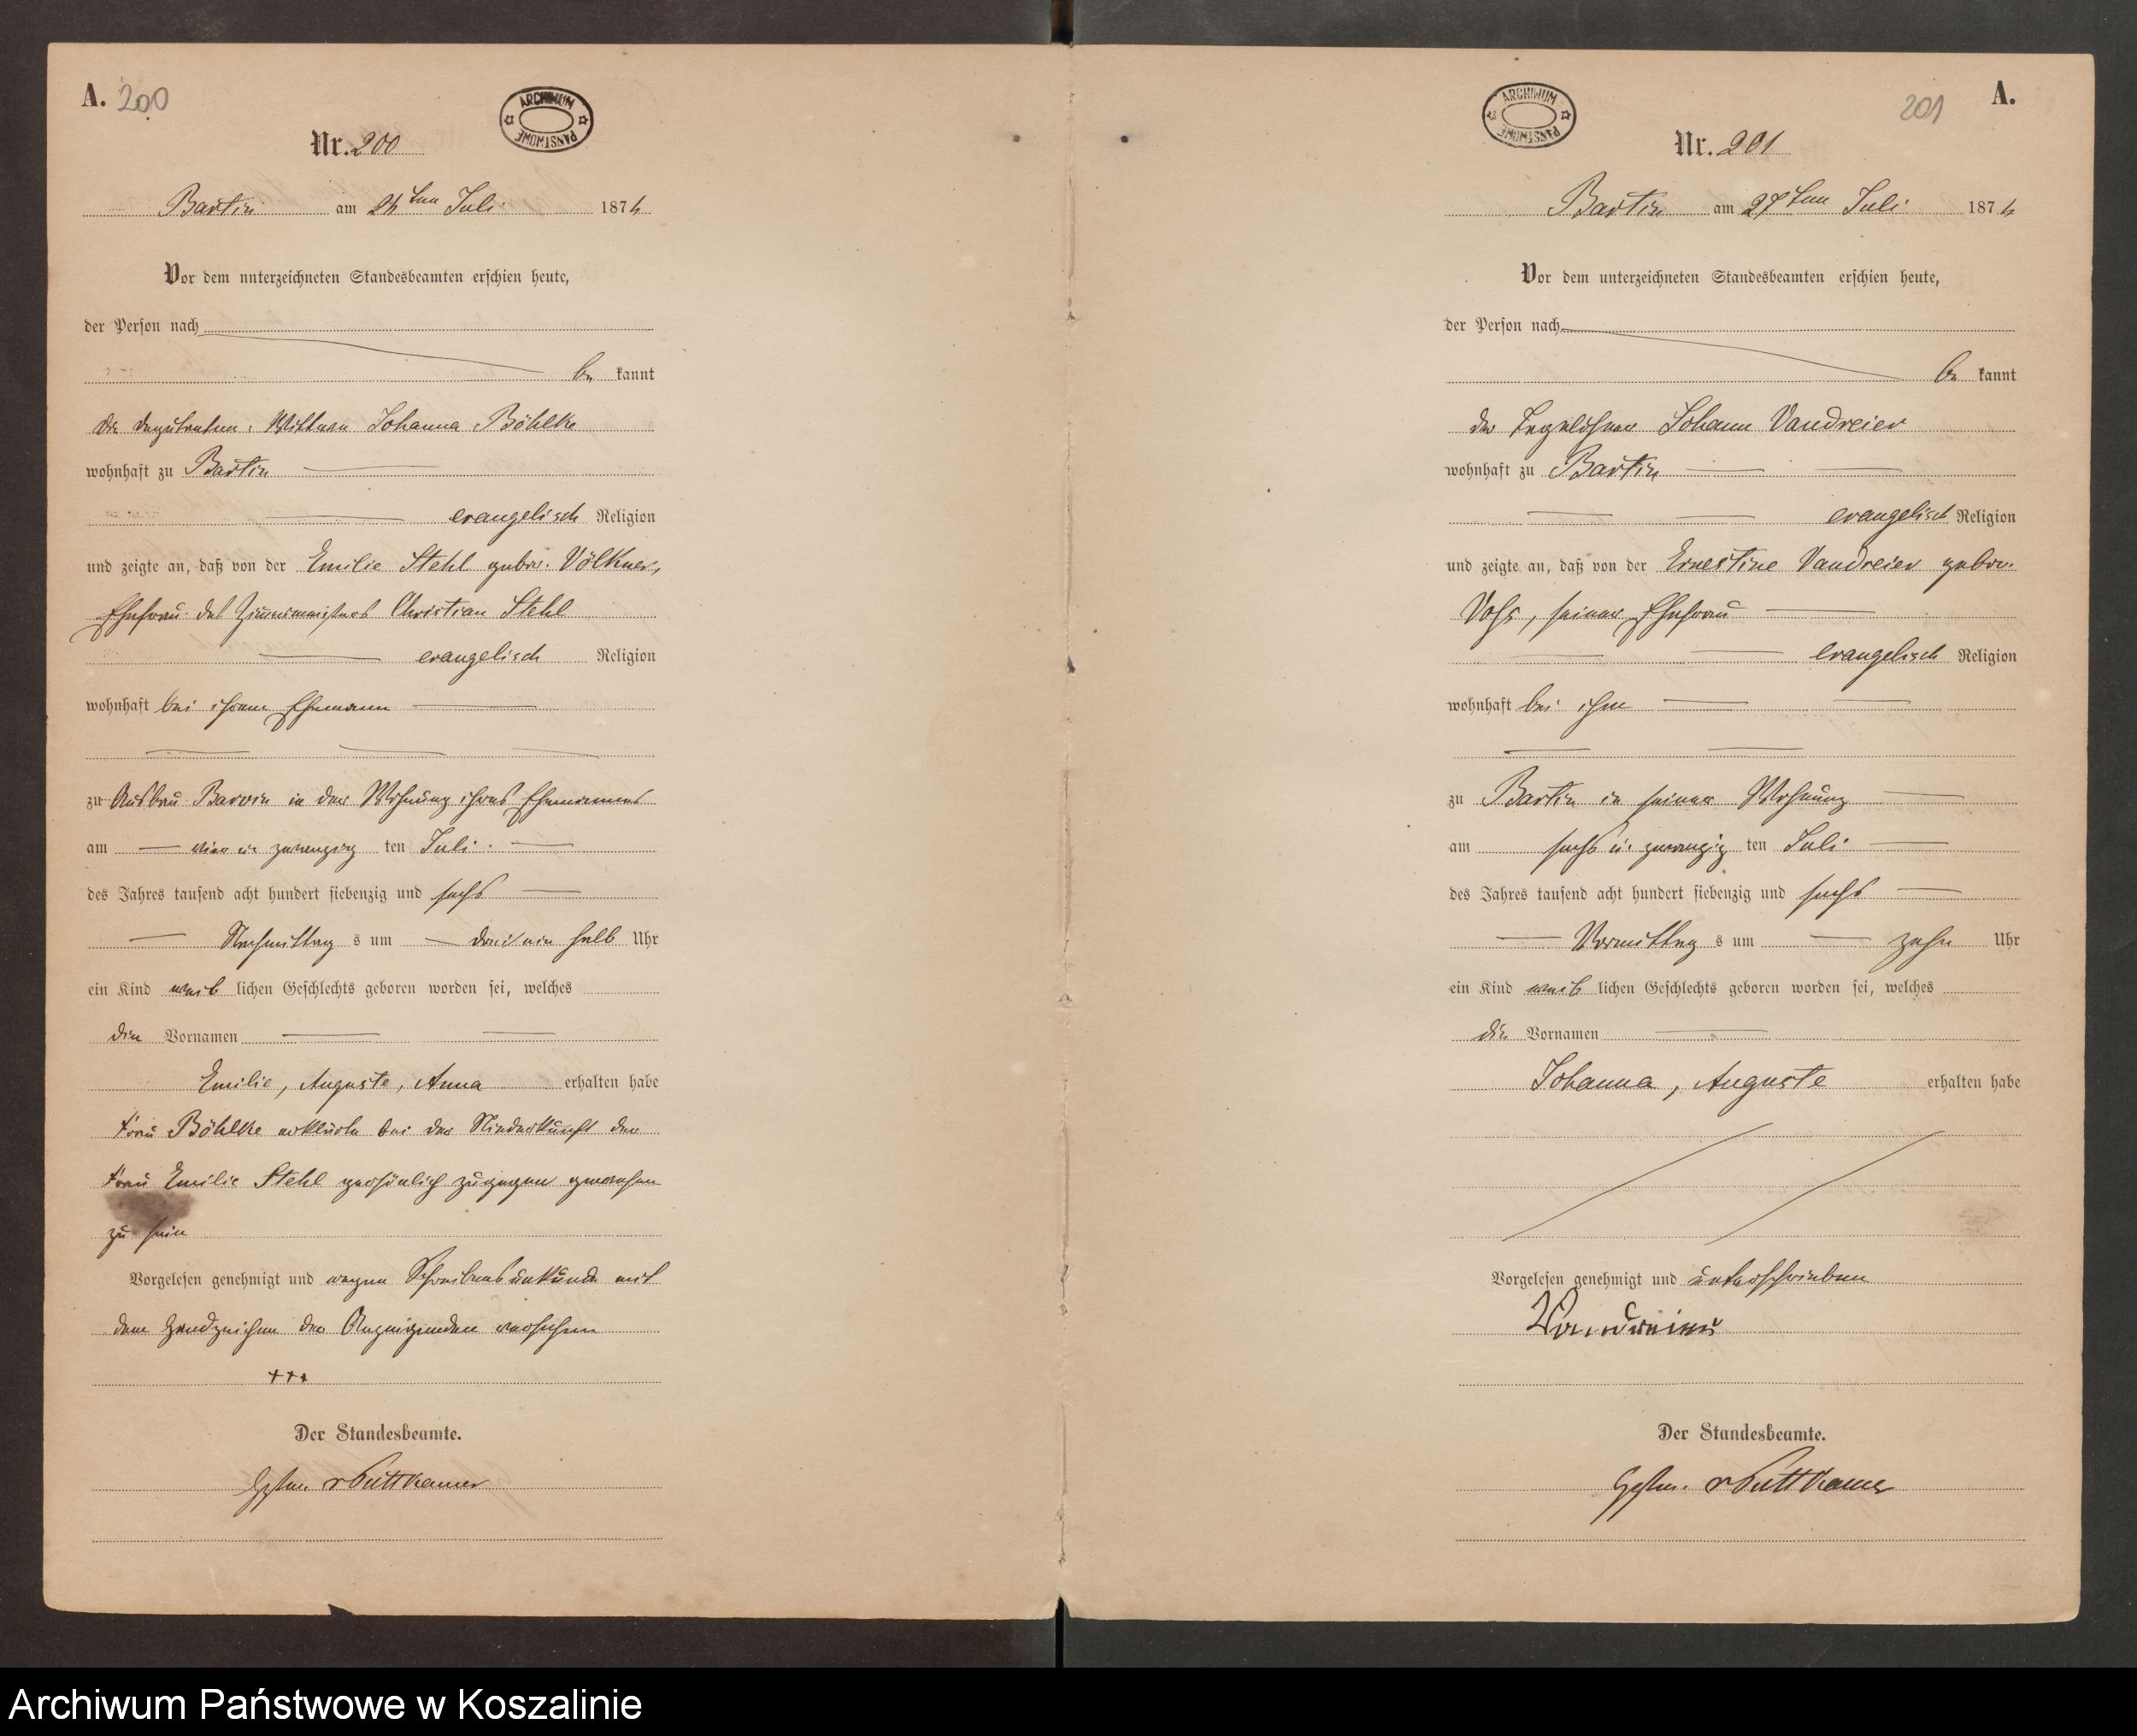 A. 200
ARCHIWUM PAŃSTWOWE
Nr. 200
Bartin am 26 ten Juli 1876
Vor dem unterzeichneten Standesbeamten erschien heute,
der Person nach
be kannt
die Deputanten-Wittwe Johanna Böhlke
wohnhaft zu Bartin
evangelisch Religion
und zeigte an, daß von der Emilie Stehl gebor. Völkner,
Ehefrau des Zimmermeisters Christian Stehl
evangelisch Religion
wohnhaft bei ihrem Ehemann
zu Ausbau Barvin in der Wohnung ihres Ehemannes
am vier u. zwanzig ten Juli
des Jahres tausend acht hundert siebenzig und sechs
Nachmittag s um drei ein halb Uhr
ein Kind weib lichen Geschlechts geboren worden sei, welches
die Vornamen
Emilie, Auguste, Anna erhalten habe
Frau Böhlke erklärte bei der Niederkunft der
Frau Emilie Stehl persönlich zugegen gewesen
zu sein
Vorgelesen genehmigt und wegen Schreibensunkunde mit
dem Handzeichen der Anzeigenden versehen
+++
Der Standesbeamte.
v Puttkamer
ARCHIWUM PAŃSTWOWE
201 A.
Nr. 201
Bartin am 27 ten Juli 1876
Vor dem unterzeichneten Standesbeamten erschien heute,
der Person nach
be kannt
der Tagelöhner Johann Vandreier
wohnhaft zu Bartin
evangelisch Religion
und zeigte an, daß von der Ernestine Vandreier gebor.
Vohs, seiner Ehefrau
evangelisch Religion
wohnhaft bei ihm
zu Bartin in seiner Wohnung
am sechs u. zwanzig ten Juli
des Jahres tausend acht hundert siebenzig und sechs
Vormittag s um zehn Uhr
ein Kind weib lichen Geschlechts geboren worden sei, welches
die Vornamen
Johanna, Auguste erhalten habe
Vorgelesen genehmigt und unterschrieben
Vandreier
Der Standesbeamte.
v Puttkamer
Archiwum Państwowe w Koszalinie